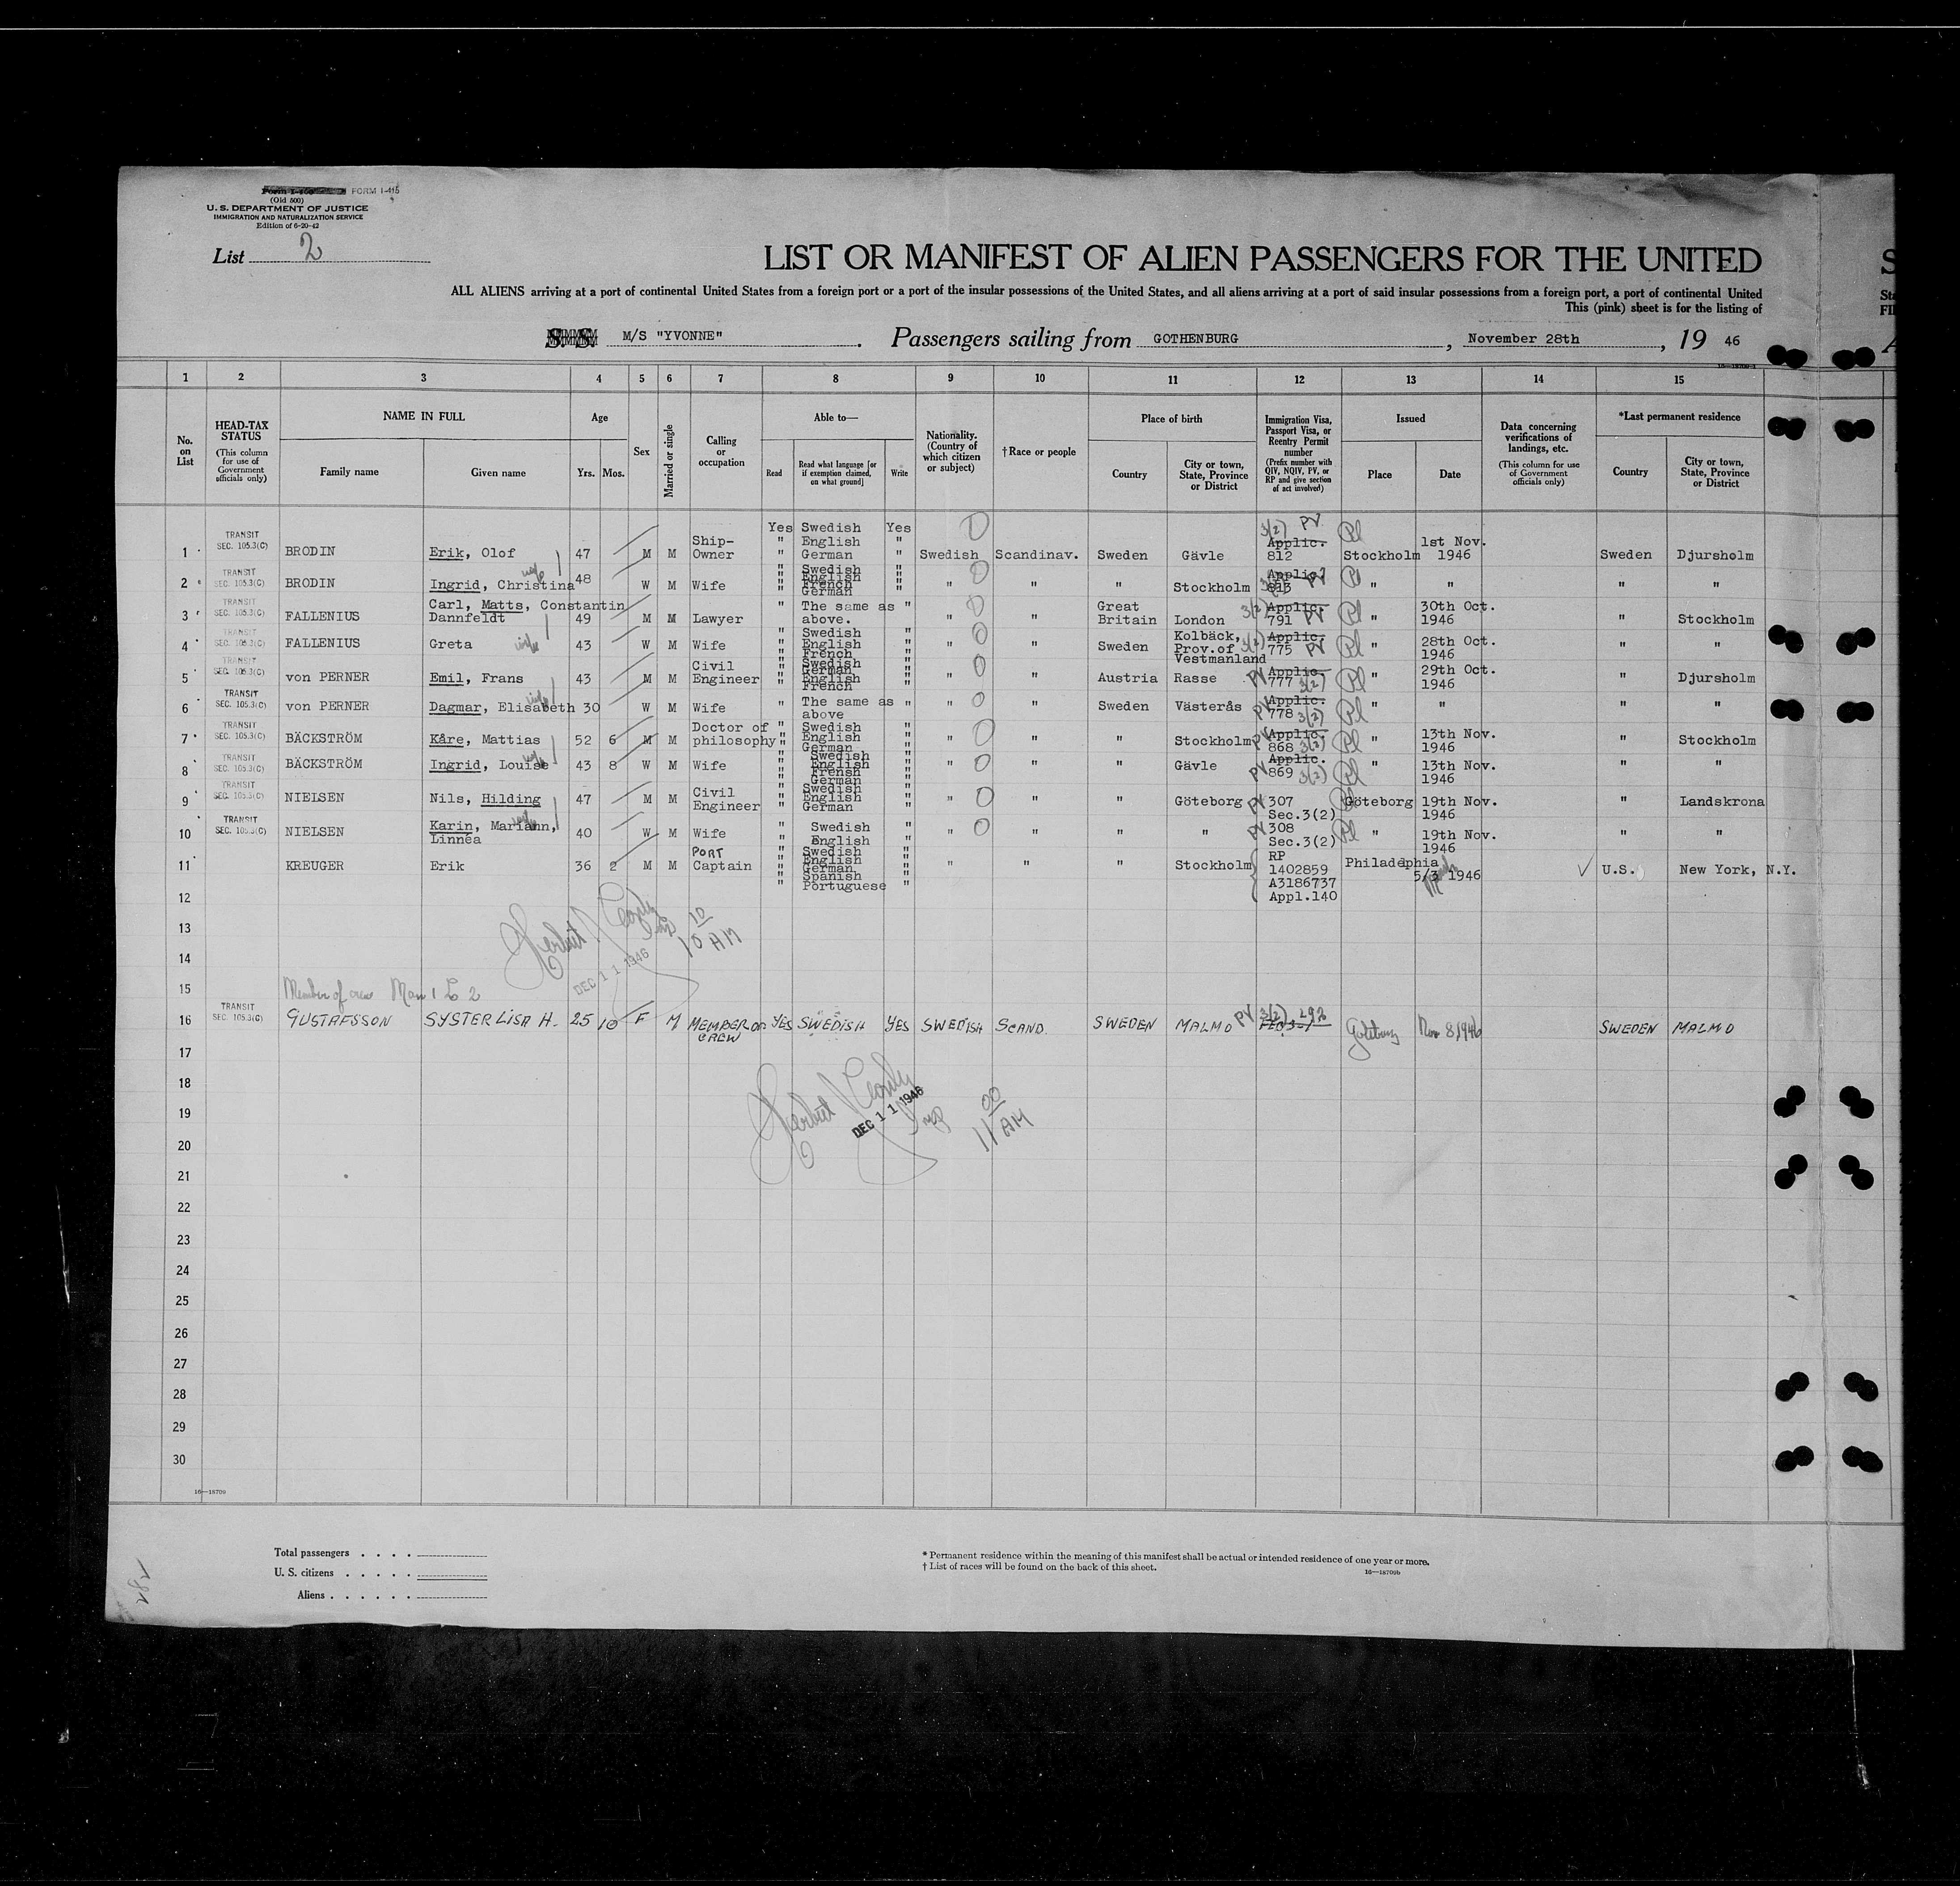 FORM I-415
(Old 500)
U. S. DEPARTMENT OF JUSTICE
IMMIGRATION AND NATURALIZATION SERVICE
Edition of 6-20-42
List 2
LIST OR MANIFEST OF ALIEN PASSENGERS FOR THE UNITED
ALL ALIENS arriving at a port of continental United States from a foreign port or a port of the insular possessions of the United States, and all aliens arriving at a port of said insular possessions from a foreign port, a port of continental United
This (pink) sheet is for the listing of
S. S. M/S "YVONNE" . Passengers sailing from GOTHENBURG , November 28th , 19 46
1 2 3 4 5 6 7 8 9 10 11 12 13 14 15
No. on List
HEAD-TAX STATUS
(This column for use of Government officials only)
NAME IN FULL
Family name Given name
Age
Yrs. Mos.
Sex
Married or single
Calling or occupation
Able to—
Read Read what language [or if exemption claimed, on what ground] Write
Nationality. (Country of which citizen or subject)
†Race or people
Place of birth
Country City or town, State, Province or District
Immigration Visa, Passport Visa, or Reentry Permit number
(Prefix number with QIV, NQIV, PV, or RP and give section of act involved)
Issued
Place Date
Data concerning verifications of landings, etc.
(This column for use of Government officials only)
*Last permanent residence
Country City or town, State, Province or District
1 TRANSIT SEC. 105.3(C) BRODIN Erik, Olof 47 M M Ship-Owner Yes Swedish Yes " English " " German " Swedish Scandinav. Sweden Gävle 3(2) PV Applic. 812 Stockholm 1st Nov. 1946 Sweden Djursholm
2 TRANSIT SEC. 105.3(C) BRODIN Ingrid, Christina wife 48 W M Wife " Swedish " " English " " French " " German " " " " Stockholm Applic. 813 PV " " " "
3 TRANSIT SEC. 105.3(C) FALLENIUS Carl, Matts, Constantin Dannfeldt 49 M M Lawyer " The same as above. " " " Great Britain London 3(2) Applic. 791 PV " 30th Oct. 1946 " Stockholm
4 TRANSIT SEC. 105.3(C) FALLENIUS Greta wife 43 W M Wife " Swedish " " English " " French " " " Sweden Kolbäck, Prov.of Vestmanland 3(2) Applic. 775 PV " 28th Oct. 1946 " "
5 TRANSIT SEC. 105.3(C) von PERNER Emil, Frans 43 M M Civil Engineer " Swedish " " German " " English " " French " " " Austria Rasse PV Applic. 777 3(2) " 29th Oct. 1946 " Djursholm
6 TRANSIT SEC. 105.3(C) von PERNER Dagmar, Elisabeth wife 30 W M Wife " The same as above " " " Sweden Västerås PV Applic. 778 3(2) " " " "
7 TRANSIT SEC. 105.3(C) BÄCKSTRÖM Kåre, Mattias 52 6 M M Doctor of philosophy " Swedish " " English " " German " " " " Stockholm PV Applic. 868 3(2) " 13th Nov. 1946 " Stockholm
8 TRANSIT SEC. 105.3(C) BÄCKSTRÖM Ingrid, Louise wife 43 8 W M Wife " Swedish " " English " " Frensh " " German " " " " Gävle PV Applic. 869 3(2) " 13th Nov. 1946 " "
9 TRANSIT SEC. 105.3(C) NIELSEN Nils, Hilding 47 M M Civil Engineer " Swedish " " English " " German " " " " Göteborg PV 307 Sec.3(2) Göteborg 19th Nov. 1946 " Landskrona
10 TRANSIT SEC. 105.3(C) NIELSEN Karin, Mariann, Linnéa wife 40 W M Wife " Swedish " " English " " " " " PV 308 Sec.3(2) " 19th Nov. 1946 " "
11 KREUGER Erik 36 2 M M PORT Captain " Swedish " " English " " German " " Spanish " " Portuguese " " " " Stockholm RP 1402859 A3186737 Appl.140 Philadephia 5/3 1946 U.S. New York, N.Y.
12
13
DEC 11 1946 10 10 AM
14
15 Member of crew Man 1 & 2
16 TRANSIT SEC. 105.3(C) GUSTAFSSON SYSTER LISA H. 25 10 F M MEMBER OF CREW YES SWEDISH YES SWEDISH SCAND. SWEDEN MALMO PV 3(2) 292 Goteborg Nov 8, 1946 SWEDEN MALMO
17
18
19
DEC 11 1946 11 00 AM
20
21
22
23
24
25
26
27
28
29
30
16—18709
Total passengers . . . .
U. S. citizens . . . . .
Aliens . . . . . .
* Permanent residence within the meaning of this manifest shall be actual or intended residence of one year or more.
† List of races will be found on the back of this sheet.
16—18709b